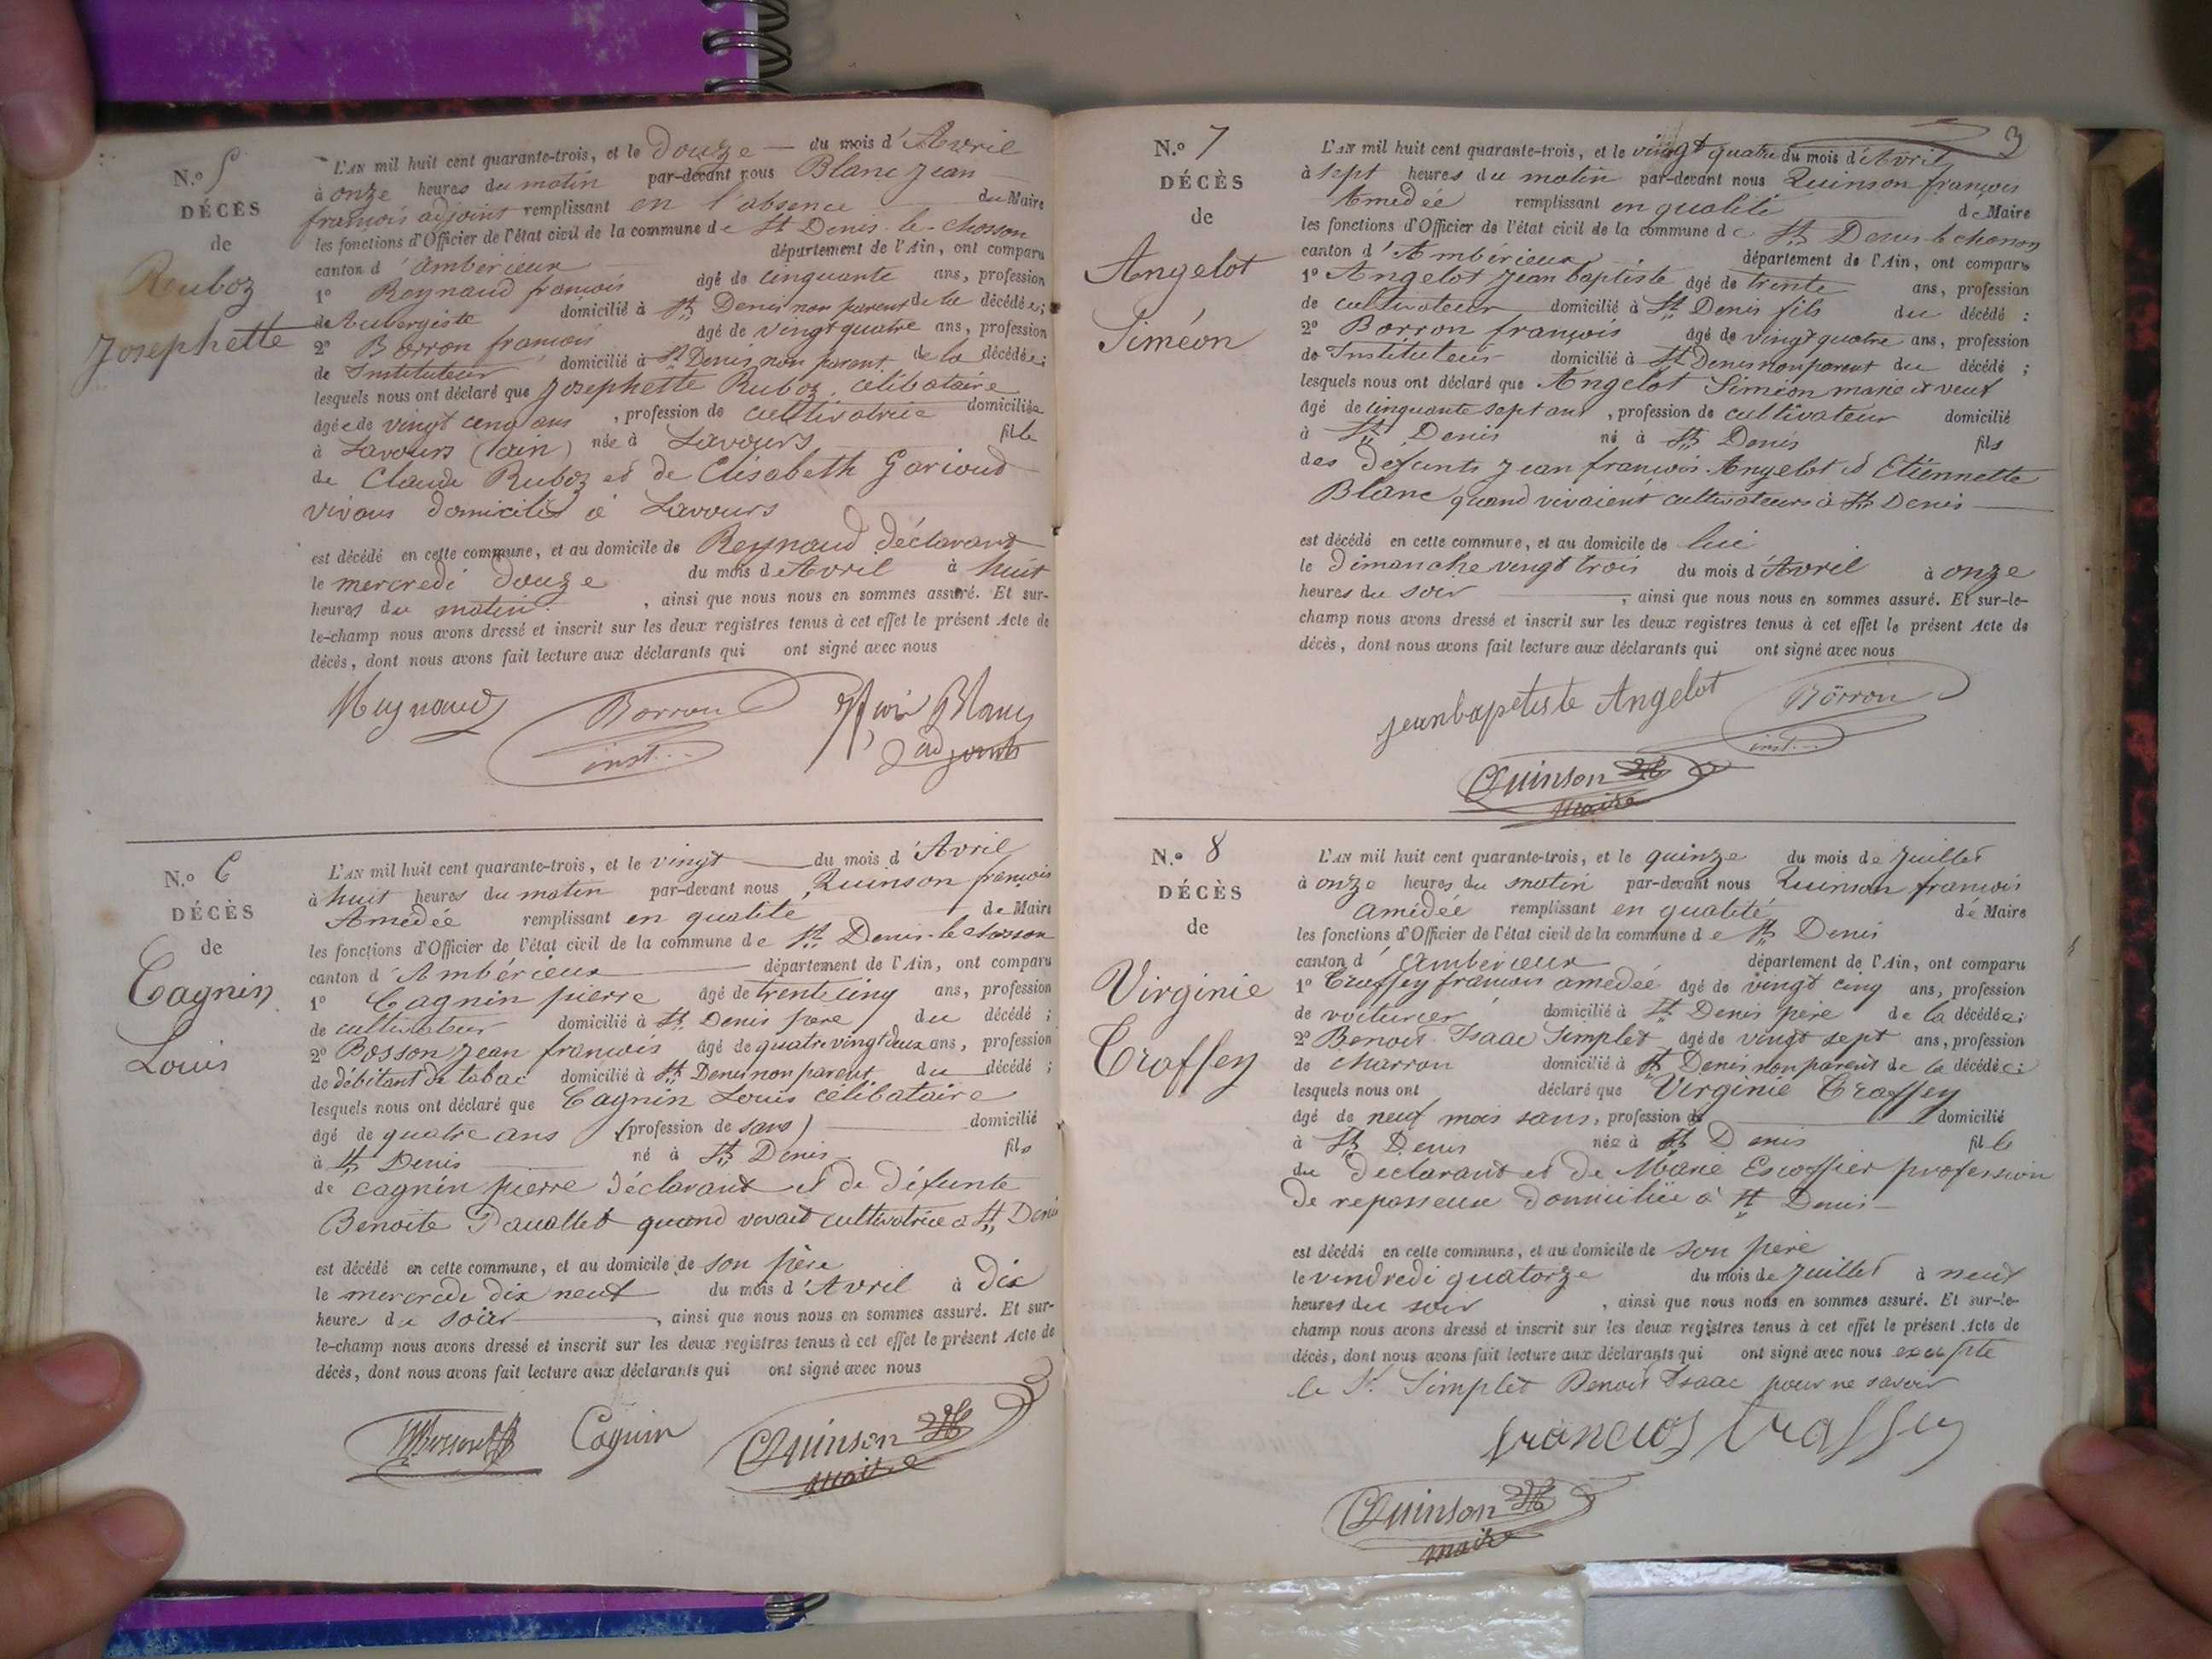 N.º 5
DÉCÈS
de
Ruboz
Josephette
L'AN mil huit cent quarante-trois, et le douze — du mois d'Avril
à onze heures du matin par-devant nous Blanc Jean
françois adjoint remplissant en l'absence du Maire
les fonctions d'Officier de l'état civil de la commune de St Denis-le-chosson
canton d'ambérieux département de l'Ain, ont comparu
1º Reynaud françois âgé de cinquante ans, profession
de Aubergiste domicilié à St Denis non parent de la décédée;
2º Borron françois âgé de vingt quatre ans, profession
de Instituteur domicilié à St Denis non parent de la décédée;
lesquels nous ont déclaré que Josephette Ruboz, célibataire
âgée de vingt cinq ans, profession de cultivatrice domiciliée
à Lavours (ain) née à Lavours fille
de Claude Ruboz et de Elisabeth Garioud
vivans domiciliés à Lavours
est décédé en cette commune, et au domicile de Reynaud déclarant
le mercredi douze du mois de Avril à huit
heures du matin, ainsi que nous nous en sommes assuré. Et sur-
le-champ nous avons dressé et inscrit sur les deux registres tenus à cet effet le présent Acte de
décès, dont nous avons fait lecture aux déclarants qui ont signé avec nous
Reynaud Borron Blanc
inst... adjoint
N.º 6
DÉCÈS
de
Cagnin
Louis
L'AN mil huit cent quarante-trois, et le vingt — du mois d'Avril
à huit heures du matin par-devant nous Quinson françois
Amédée remplissant en qualité de Maire
les fonctions d'Officier de l'état civil de la commune de St Denis-le chosson
canton d'Ambérieux — département de l'Ain, ont comparu
1º Cagnin pierre âgé de trente cinq ans, profession
de cultivateur domicilié à St Denis père du décédé;
2º Bosson Jean françois âgé de quatre vingt deux ans, profession
de débitant de tabac domicilié à St Denis non parent du décédé;
lesquels nous ont déclaré que Cagnin Louis célibataire
âgé de quatre ans (profession de sans) — domicilié
à St Denis né à St Denis fils
de cagnin pierre déclarant et de défunte
Benoite quand vivait cultivatrice à St Denis
est décédé en cette commune, et au domicile de son père
le mercredi dix neuf du mois d'Avril à dix
heures du soir —, ainsi que nous nous en sommes assuré. Et sur-
le-champ nous avons dressé et inscrit sur les deux registres tenus à cet effet le présent Acte de
décès, dont nous avons fait lecture aux déclarants qui ont signé avec nous
Cagnin Quinson
maire
3
N.º 7
DÉCÈS
de
Angelot
Siméon
L'AN mil huit cent quarante-trois, et le vingt quatre du mois d'Avril
à sept heures du matin par-devant nous Quinson françois
Amédée remplissant en qualité de Maire
les fonctions d'Officier de l'état civil de la commune de St Denis le chosson
canton d'Ambérieux département de l'Ain, ont comparu
1º Angelot Jean baptiste âgé de trente ans, profession
de cultivateur domicilié à St Denis fils du décédé;
2º Borron françois âgé de vingt quatre ans, profession
de Instituteur domicilié à St Denis non parent du décédé;
lesquels nous ont déclaré que Angelot Siméon marie et veuf
âgé de cinquante sept ans, profession de cultivateur domicilié
à St Denis né à St Denis fils
des défunts Jean françois Angelot et Etiennette
Blanc quand vivaient cultivateurs à St Denis —
est décédé en cette commune, et au domicile de lui
le dimanche vingt trois du mois d'Avril à onze
heures du soir —, ainsi que nous nous en sommes assuré. Et sur-le-
champ nous avons dressé et inscrit sur les deux registres tenus à cet effet le présent Acte de
décès, dont nous avons fait lecture aux déclarants qui ont signé avec nous
jeanbaptiste Angelot Borron
inst...
Quinson
maire
N.º 8
DÉCÈS
de
Virginie
Traffey
L'AN mil huit cent quarante-trois, et le quinze du mois de Juillet
à onze heures du matin par-devant nous Quinson françois
amédée remplissant en qualité de Maire
les fonctions d'Officier de l'état civil de la commune de St Denis
canton d'ambérieux département de l'Ain, ont comparu
1º Traffey françois amedée âgé de vingt cinq ans, profession
de voiturier domicilié à St Denis père de la décédée;
2º Benoit Isaac Simplet âgé de vingt sept ans, profession
de charron domicilié à St Denis non parent de la décédée;
lesquels nous ont déclaré que Virginie Traffey
âgé de neuf mois sans, profession de domicilié
à St Denis née à St Denis fille
du déclarant et de Marie Escoffier profession
de repasseuse domiciliée à St Denis —
est décédé en cette commune, et au domicile de son père
le vendredi quatorze du mois de Juillet à neuf
heures du soir, ainsi que nous nous en sommes assuré. Et sur-le-
champ nous avons dressé et inscrit sur les deux registres tenus à cet effet le présent Acte de
décès, dont nous avons fait lecture aux déclarants qui ont signé avec nous excepté
le Sr Simplet Benoit Isaac pour ne savoir
francios traffey
Quinson
maire